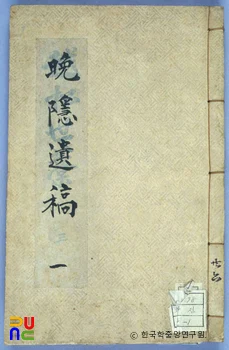 晩隱遺稿
一
共六
© 한국학중앙연구원